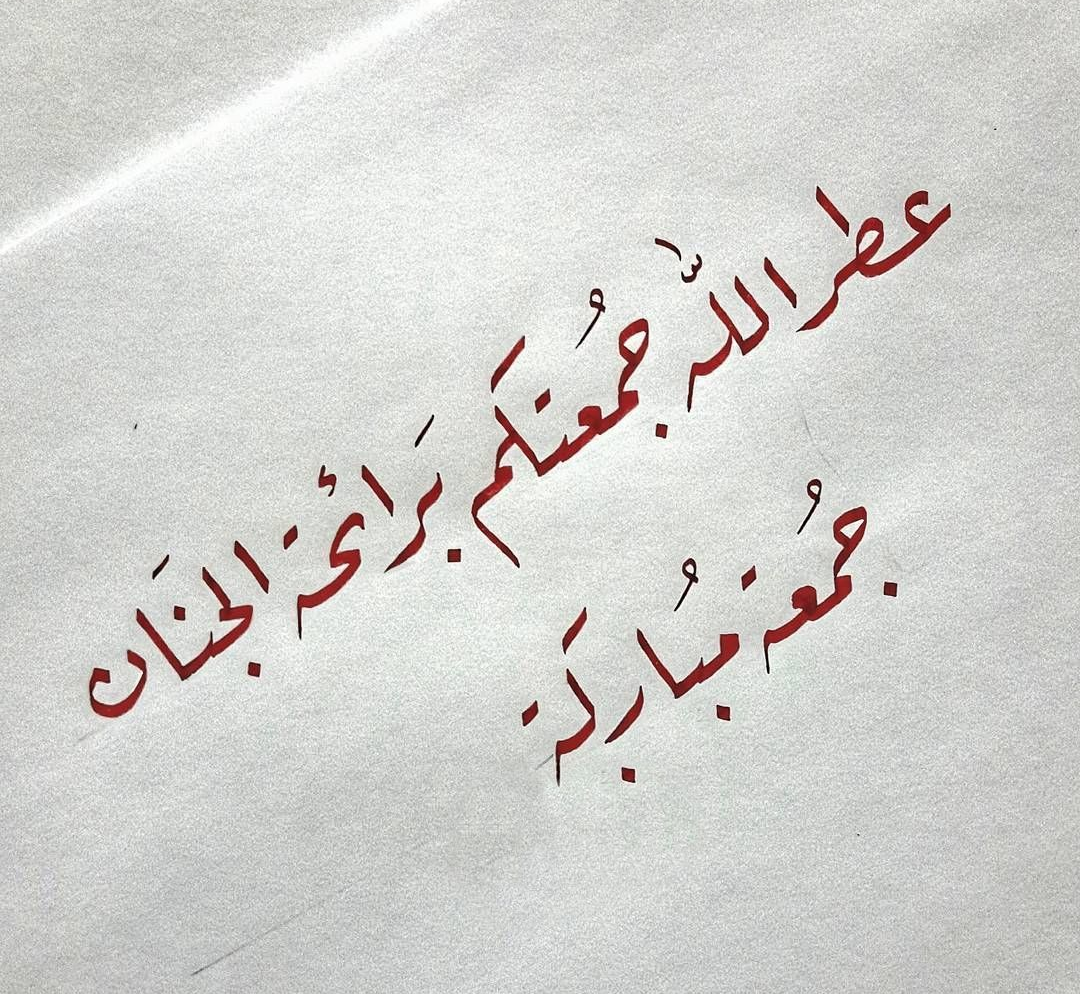 عطر اللّٰه جمُعتكم بَرائحة الجنَان
جمُعة مُباركة